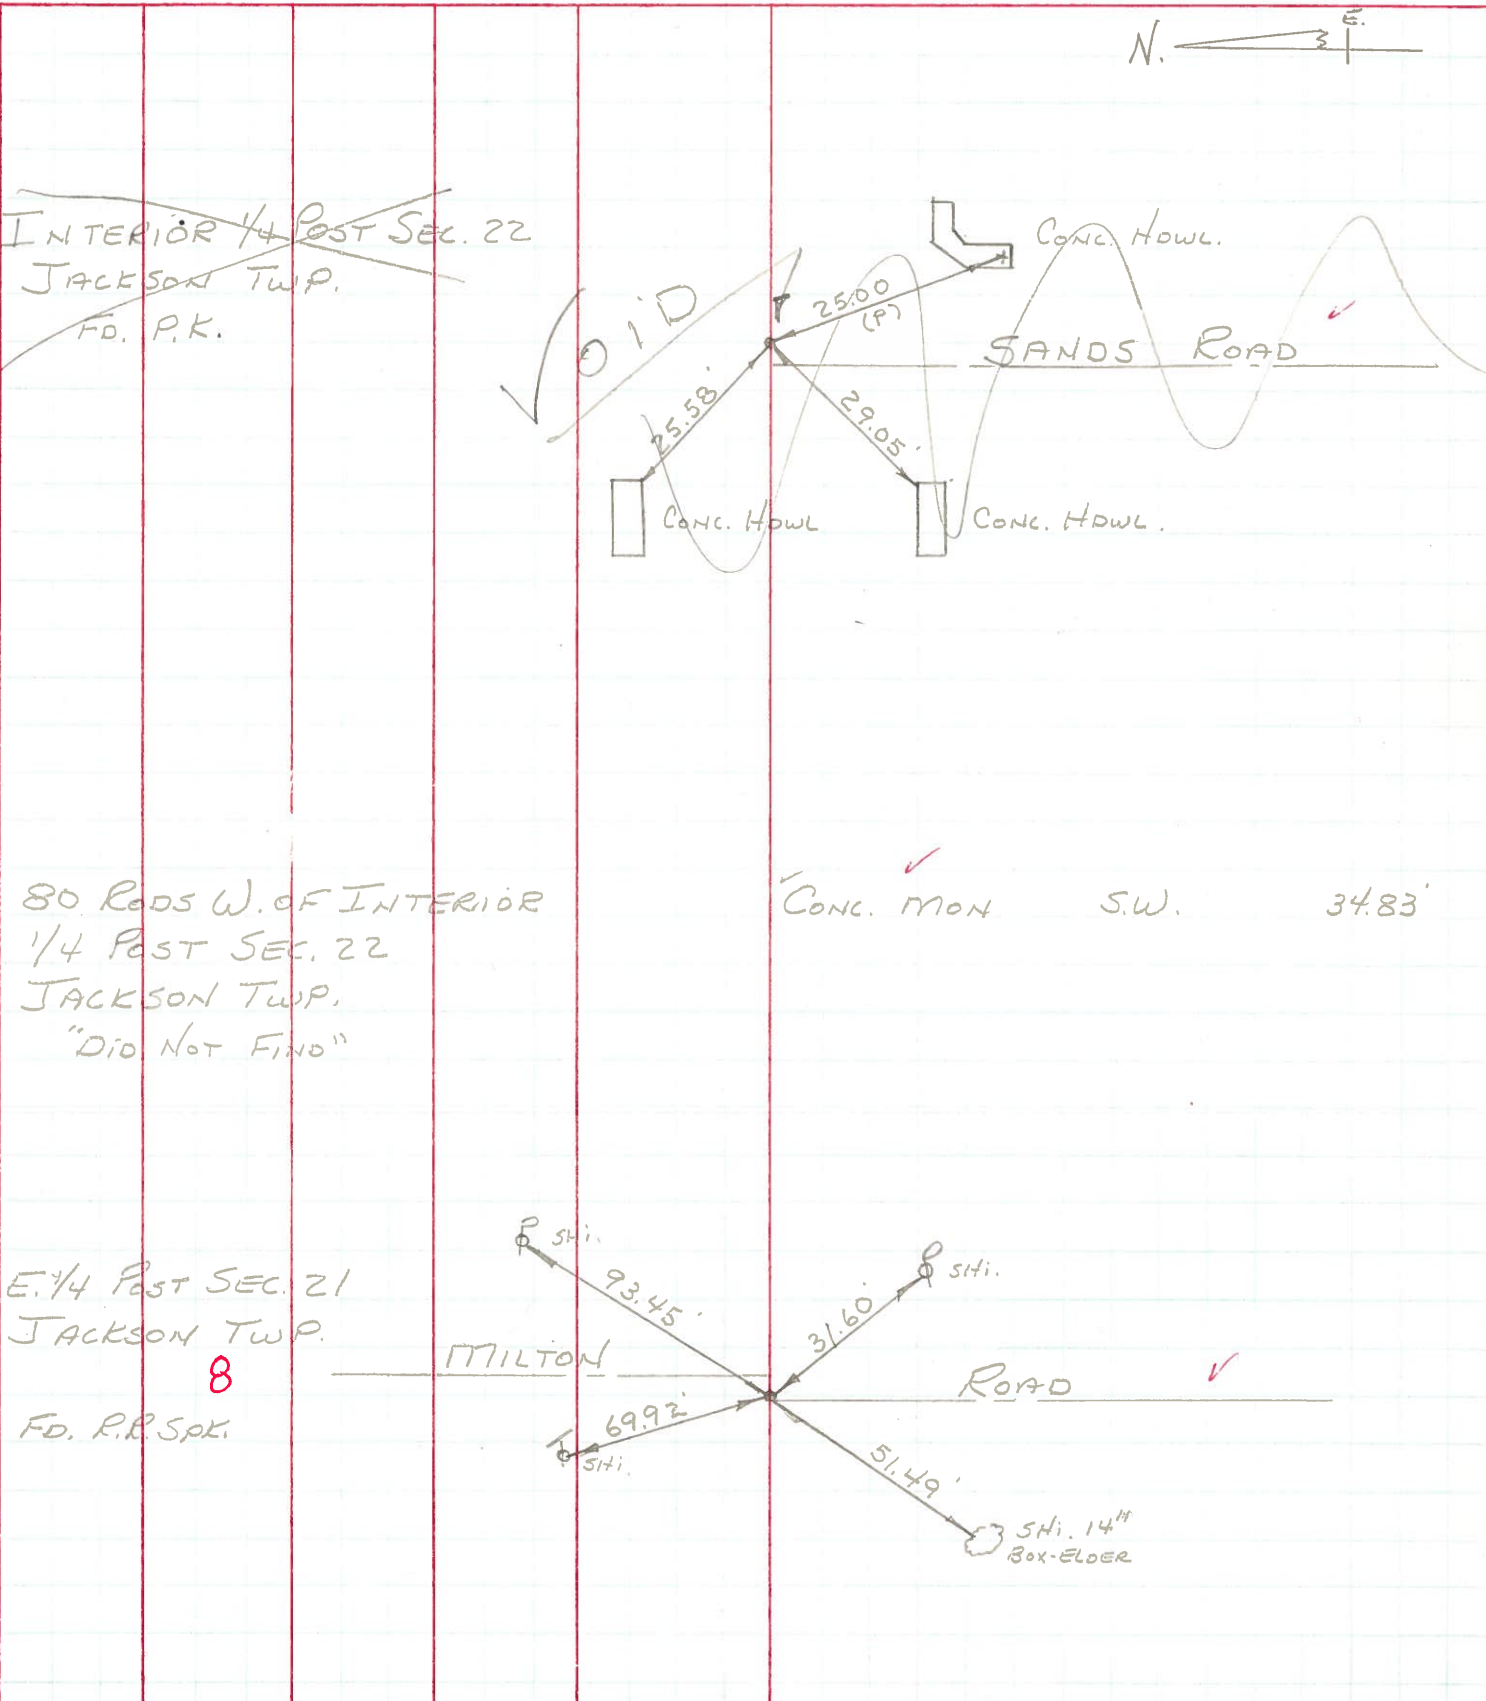 E.
N.
INTERIOR 1/4 POST SEC. 22
JACKSON TWP.
FD. P.K.
VOID
CONC. HDWL.
25.00
(P)
SANDS ROAD
25.58'
29.05'
CONC. HDWL
CONC. HDWL.
80 RODS W. OF INTERIOR
1/4 POST SEC. 22
JACKSON TWP.
"DID NOT FIND"
CONC. MON S.W. 34.83'
E. 1/4 POST SEC. 21
JACKSON TWP.
8
FD. R.R. SPK.
SHI.
93.45'
SHI.
31.60'
MILTON ROAD
69.92'
SHI.
51.49'
SHI. 14"
BOX-ELDER